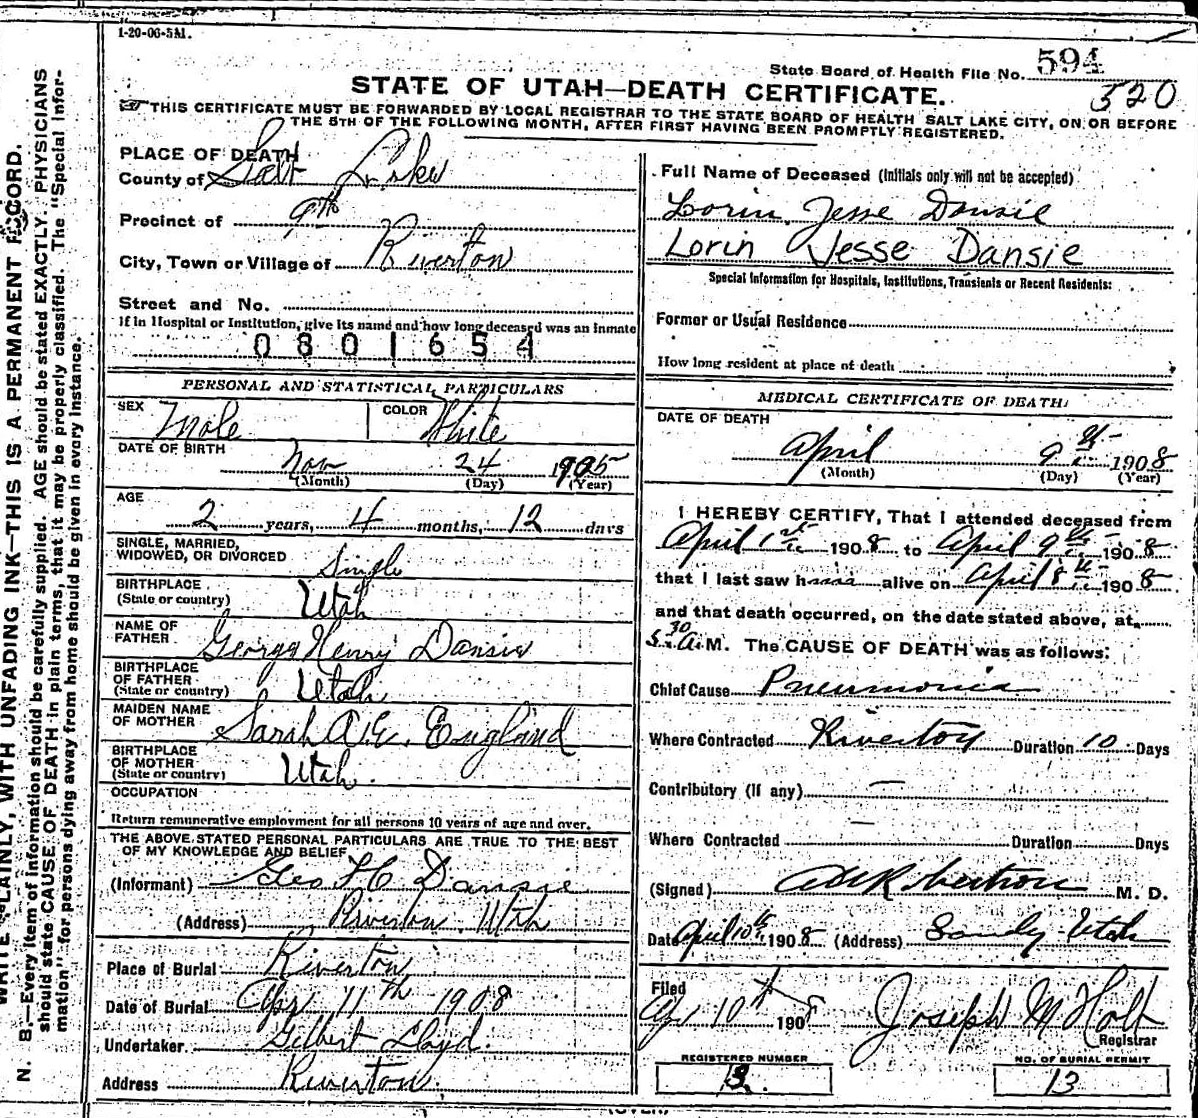 1-20-06-5M.
State Board of Health File No. 594
320
STATE OF UTAH—DEATH CERTIFICATE.
THIS CERTIFICATE MUST BE FORWARDED BY LOCAL REGISTRAR TO THE STATE BOARD OF HEALTH SALT LAKE CITY, ON OR BEFORE
THE 5TH OF THE FOLLOWING MONTH, AFTER FIRST HAVING BEEN PROMPTLY REGISTERED.
PLACE OF DEATH
County of Salt Lake
Precinct of 9th
City, Town or Village of Riverton
Street and No.
If in Hospital or Institution, give its name and how long deceased was an inmate
0801654
PERSONAL AND STATISTICAL PARTICULARS
SEX Male COLOR White
DATE OF BIRTH
Nov 24 1905
(Month) (Day) (Year)
AGE
2 years, 4 months, 12 days
SINGLE, MARRIED,
WIDOWED, OR DIVORCED Single
BIRTHPLACE
(State or country) Utah
NAME OF
FATHER George Henry Dansie
BIRTHPLACE
OF FATHER
(State or country) Utah
MAIDEN NAME
OF MOTHER Sarah A.E. England
BIRTHPLACE
OF MOTHER
(State or country) Utah.
OCCUPATION
Return remunerative employment for all persons 10 years of age and over.
THE ABOVE STATED PERSONAL PARTICULARS ARE TRUE TO THE BEST
OF MY KNOWLEDGE AND BELIEF
(Informant) Geo H Dansie
(Address) Riverton Utah
Place of Burial Riverton
Date of Burial Apr 11th 1908
Undertaker Gilbert Lloyd.
Address Riverton.
Full Name of Deceased (Initials only will not be accepted)
Lorin Jesse Dansie
Lorin Jesse Dansie
Special Information for Hospitals, Institutions, Transients or Recent Residents:
Former or Usual Residence
How long resident at place of death
MEDICAL CERTIFICATE OF DEATH
DATE OF DEATH
April 9th 1908
(Month) (Day) (Year)
I HEREBY CERTIFY, That I attended deceased from
April 1st 1908 to April 9th 1908
that I last saw h alive on April 8th 1908
and that death occurred, on the date stated above, at
5.30 A.M. The CAUSE OF DEATH was as follows:
Chief Cause Pneumonia
Where Contracted Riverton Duration 10 Days
Contributory (if any) —
Where Contracted — Duration Days
(Signed) Robertson M. D.
Date April 10th 1908 (Address) Sandy Utah
Filed
Ap 10th 1908 Joseph M Holt
Registrar
REGISTERED NUMBER
NO. OF BURIAL PERMIT
13
(OVER)
WRITE PLAINLY, WITH UNFADING INK—THIS IS A PERMANENT RECORD.
N. B.—Every item of information should be carefully supplied. AGE should be stated EXACTLY. PHYSICIANS
should state CAUSE OF DEATH in plain terms, that it may be properly classified. The "Special Infor-
mation" for persons dying away from home should be given in every instance.